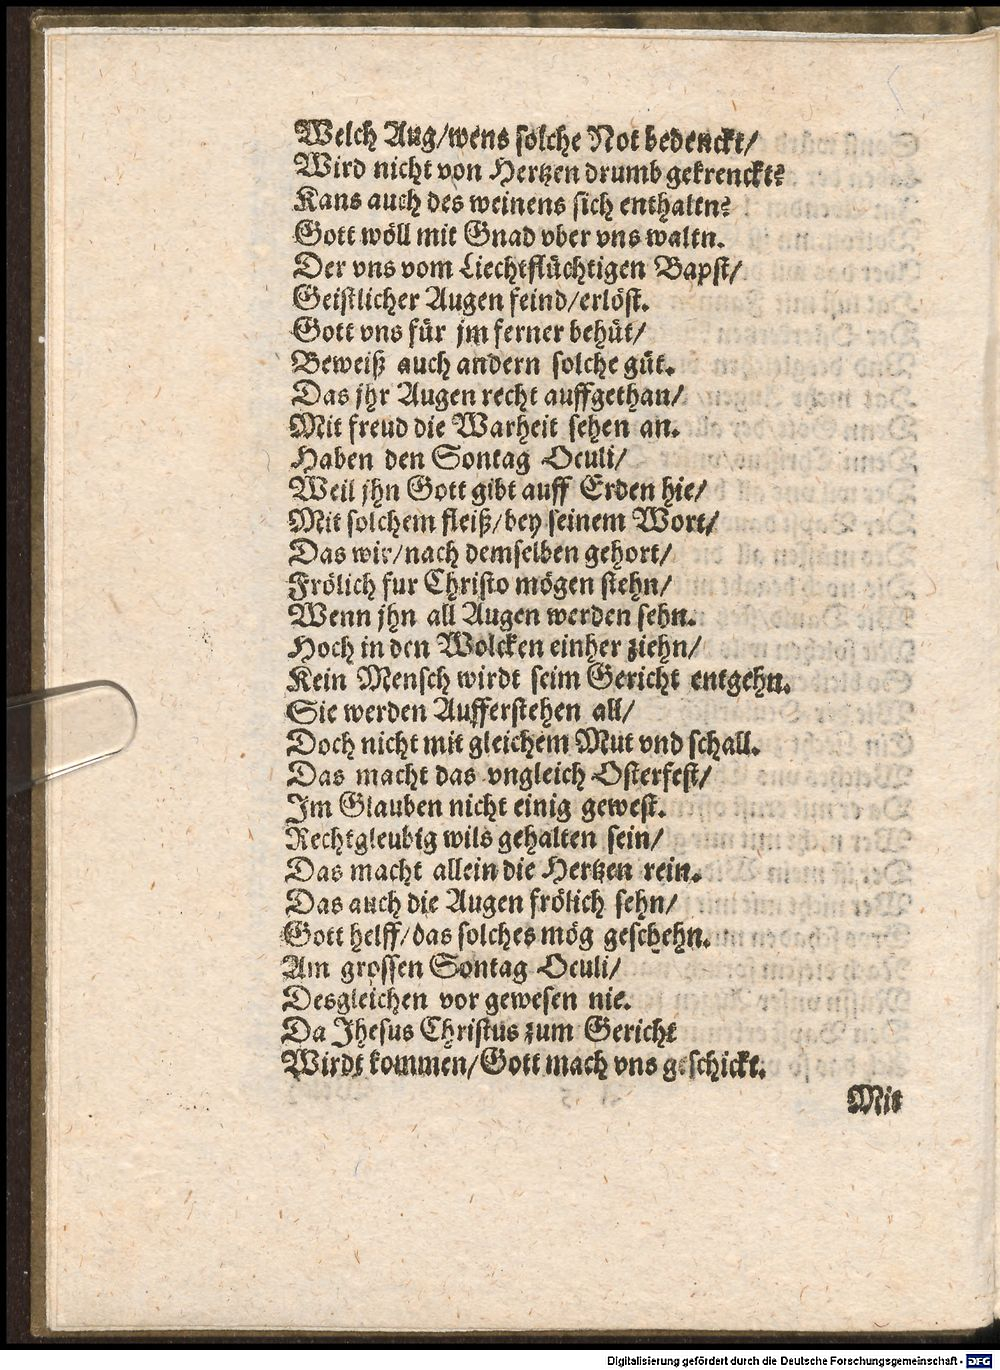 Welch Aug/wens solche Not bedenckt/
Wird nicht von Hertzen drumb gekrenckt?
Kans auch des weinens sich enthaltn?
Gott wöll mit Gnad vber vns waltn.
Der vns vom Liechtflüchtigen Bapst/
Geistlicher Augen feind/erlöst.
Gott vns für jm ferner behüt/
Beweiß auch andern solche güt.
Das jhr Augen recht auffgethan/
Mit freud die Warheit sehen an.
Haben den Sontag Oculi/
Weil jhn Gott gibt auff Erden hie/
Mit solchem fleiß/bey seinem Wort/
Das wir/nach demselben gehort/
Frölich fur Christo mögen stehn/
Wenn jhn all Augen werden sehn.
Hoch in den Wolcken einher ziehn/
Kein Mensch wirdt seim Gericht entgehn.
Sie werden Aufferstehen all/
Doch nicht mit gleichem Mut vnd schall.
Das macht das vngleich Osterfest/
Im Glauben nicht einig gewest.
Rechtgleubig wils gehalten sein/
Das macht allein die Hertzen rein.
Das auch die Augen frölich sehn/
Gott helff/das solches mög geschehn.
Am grossen Sontag Oculi/
Desgleichen vor gewesen nie.
Da Jhesus Christus zum Gericht
Wirdt kommen/Gott mach vns geschickt.
Mit
Digitalisierung gefördert durch die Deutsche Forschungsgemeinschaft - DFG